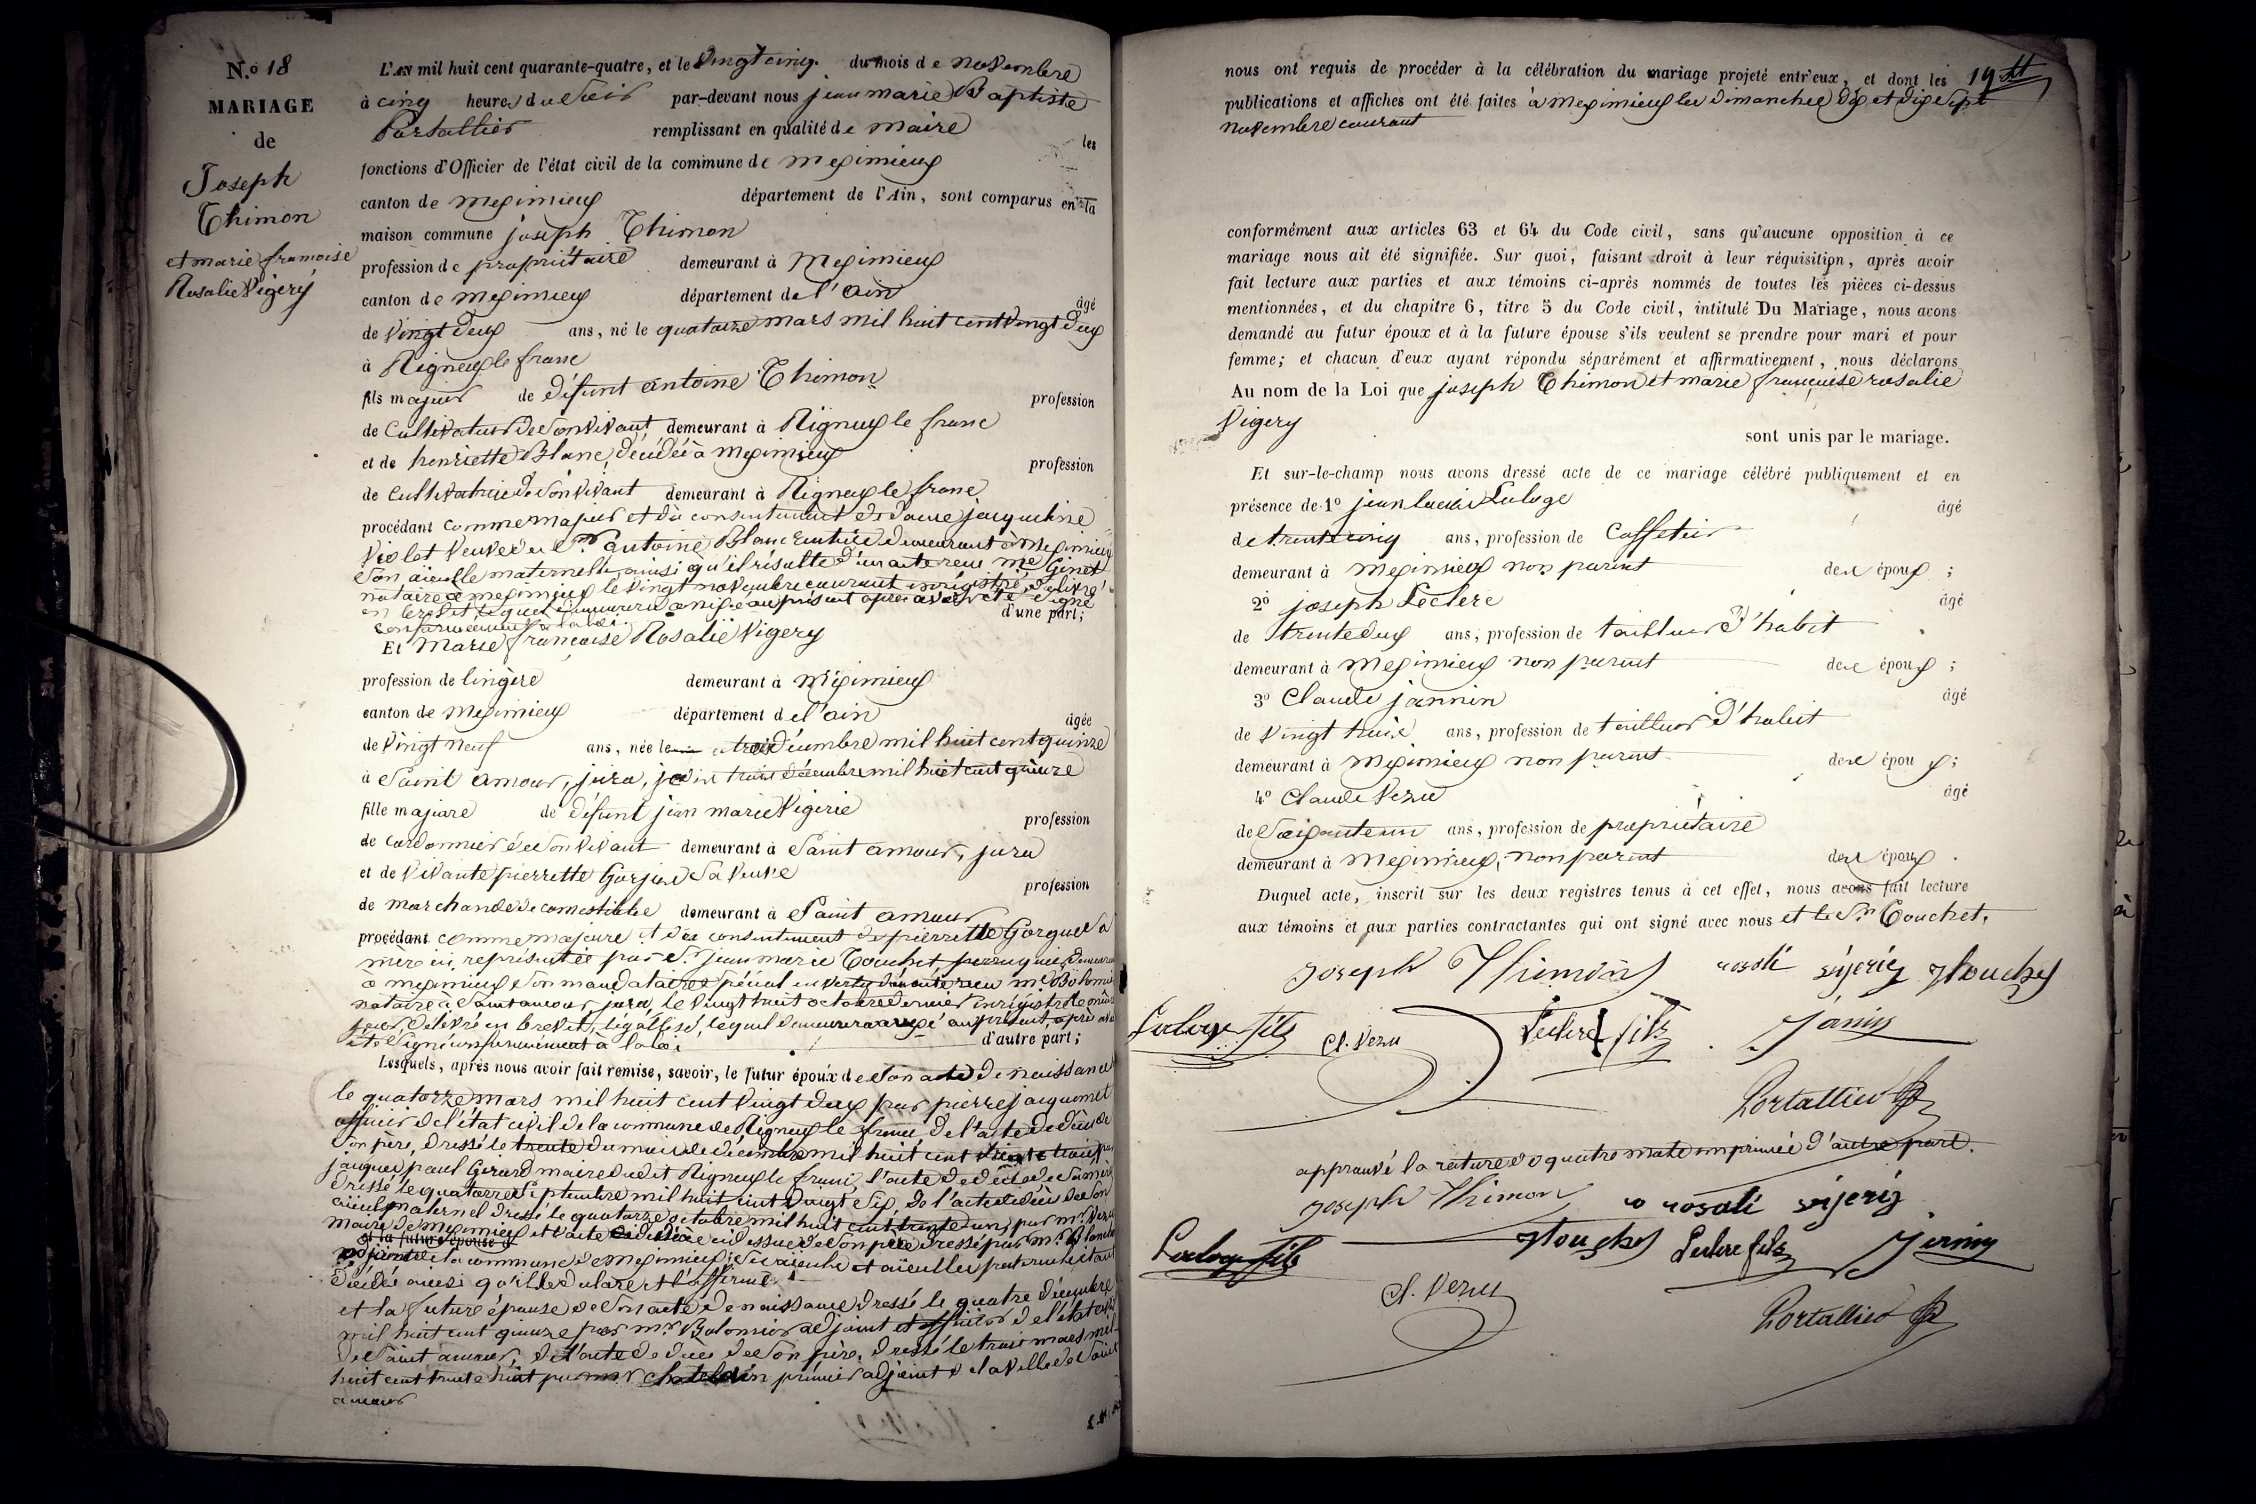 N.º 18
MARIAGE
de
Joseph
Thimon
et marie francoise
Rosalie Vigery
L'AN mil huit cent quarante-quatre, et le vingt cinq du mois de novembre
à cinq heures du soir par-devant nous jean marie Baptiste
Portallier remplissant en qualité de maire les
fonctions d'Officier de l'état civil de la commune de meximieux
canton de meximieux département de l'Ain, sont comparus en la
maison commune joseph Thimon
profession de propriétaire demeurant à Meximieux
canton de meximieux département de l'ain âgé
de vingt deux ans, né le quatorze mars mil huit cent vingt deux
à Rigneux le franc
fils majeur de défunt antoine Thimon profession
de Cultivateur de son vivant demeurant à Rigneux le franc
et de henriette Blanc, décédée à meximieux profession
de Cultivatrice de son vivant demeurant à Rigneux le franc
procédant comme majeur et du consentement de dame jacqueline
Violot Veuve de Sr. antoine Blanc rentière demeurant à Meximieux
son aieulle maternelle, ainsi qu'il résulte d'un acte reçu me Ginet
notaire à meximieux le vingt novembre courant enrégistré, délivré
en brevet lequel demeurera annexé au présent après avoir été signé
conformément à la loi d'une part;
Et Marie francoise Rosalie Vigery
profession de lingère demeurant à Méximieux
canton de Meximieux département de l'ain âgée
de vingt neuf ans, née le trois décembre mil huit cent quinze
à Saint amour, jura, trois décembre mil huit cent quinze
fille majeure de défunt jean marie Vigerie profession
de cordonnier de son vivant demeurant à Saint amour, jura
et de vivante pierrette Gorjue sa veuve profession
de marchande de comestible demeurant à Saint amour
procédant comme majeure et du consentement de pierrette Gorgue sa
mère ici représentée par Sr. jean marie Touchet perruquier demeurant
à meximieux son mandataire spécial en vertu d'un acte reçu me
notaire à Saint amour jura, le vingt huit octobre dernier enrégistré le même
jour, délivré en brevet, légalisé, lequel demeurera annexé au présent, après avoir
été signé conformément à la loi d'autre part;
Lesquels, après nous avoir fait remise, savoir, le futur époux de son acte de naissance
le quatorze mars mil huit cent vingt deux par pierre jacquemet
officier de l'état civil de la commune de Rigneux le franc, de l'acte de décès de
son père, dressé le trente du mois de décembre mil huit cent trente trois par
jacques paul Girard maire dudit Rigneux le franc, l'acte de décès de sa mère
dressé le quatorze Septembre mil huit cent vingt six, de l'acte de décès de son
aïeul maternel dressé le quatorze octobre mil huit cent trente un, par mr. Vezu
maire de Meximieux et l'acte de décès ci dessus de son père dressé par mr. Blanchet
et la future épouse d
adjoint de la commune de Meximieux; ses aïeuls et aïeulles paternels étant
décédés ainsi qu'il le déclare et l'affirme
et la future épouse de son acte de naissance dressé le quatre décembre
mil huit cent quinze par mr. adjoint et officier de l'état civil
de Saint amour, de l'acte de décès de son père, dressé le trois mars mil
huit cent trente huit par mr premier adjoint de la ville de Saint
amour
19
nous ont requis de procéder à la célébration du mariage projeté entr'eux, et dont les
publications et affiches ont été faites à meximieux les dimanches dix et dix sept
novembre courant
conformément aux articles 63 et 64 du Code civil, sans qu'aucune opposition à ce
mariage nous ait été signifiée. Sur quoi, faisant droit à leur réquisition, après avoir
fait lecture aux parties et aux témoins ci-après nommés de toutes les pièces ci-dessus
mentionnées, et du chapitre 6, titre 5 du Code civil, intitulé Du Mariage, nous avons
demandé au futur époux et à la future épouse s'ils veulent se prendre pour mari et pour
femme; et chacun d'eux ayant répondu séparément et affirmativement, nous déclarons
Au nom de la Loi que joseph Thimon et marie françoise rosalie
Vigery
sont unis par le mariage.
Et sur-le-champ nous avons dressé acte de ce mariage célébré publiquement et en
présence de 1º jean Laloge âgé
de trente cinq ans, profession de Caffetier
demeurant à meximieux non parent des époux ;
2º joseph Leclerc âgé
de trente deux ans, profession de tailleur d'habit
demeurant à meximieux non parent des époux ;
3º Claude jannin âgé
de vingt trois ans, profession de tailleur d'habit
demeurant à Meximieux non parent des époux ;
4º Claude Vezu âgé
de Soixante un ans, profession de propriétaire
demeurant à meximieux, non parent des époux .
Duquel acte, inscrit sur les deux registres tenus à cet effet, nous avons fait lecture
aux témoins et aux parties contractantes qui ont signé avec nous et le Sr. Touchet.
Joseph Thimon rosali vijeriy Jtouchet
Laloge fils Cl. Vezu Leclerc fils Janin
Portallier
approuvé la rature de quatre mots imprimés d'autre part.
Joseph Thimon rosali vijeriy
Laloge fils Jtouchet Leclerc fils Janin
Cl. Vezu
Portallier